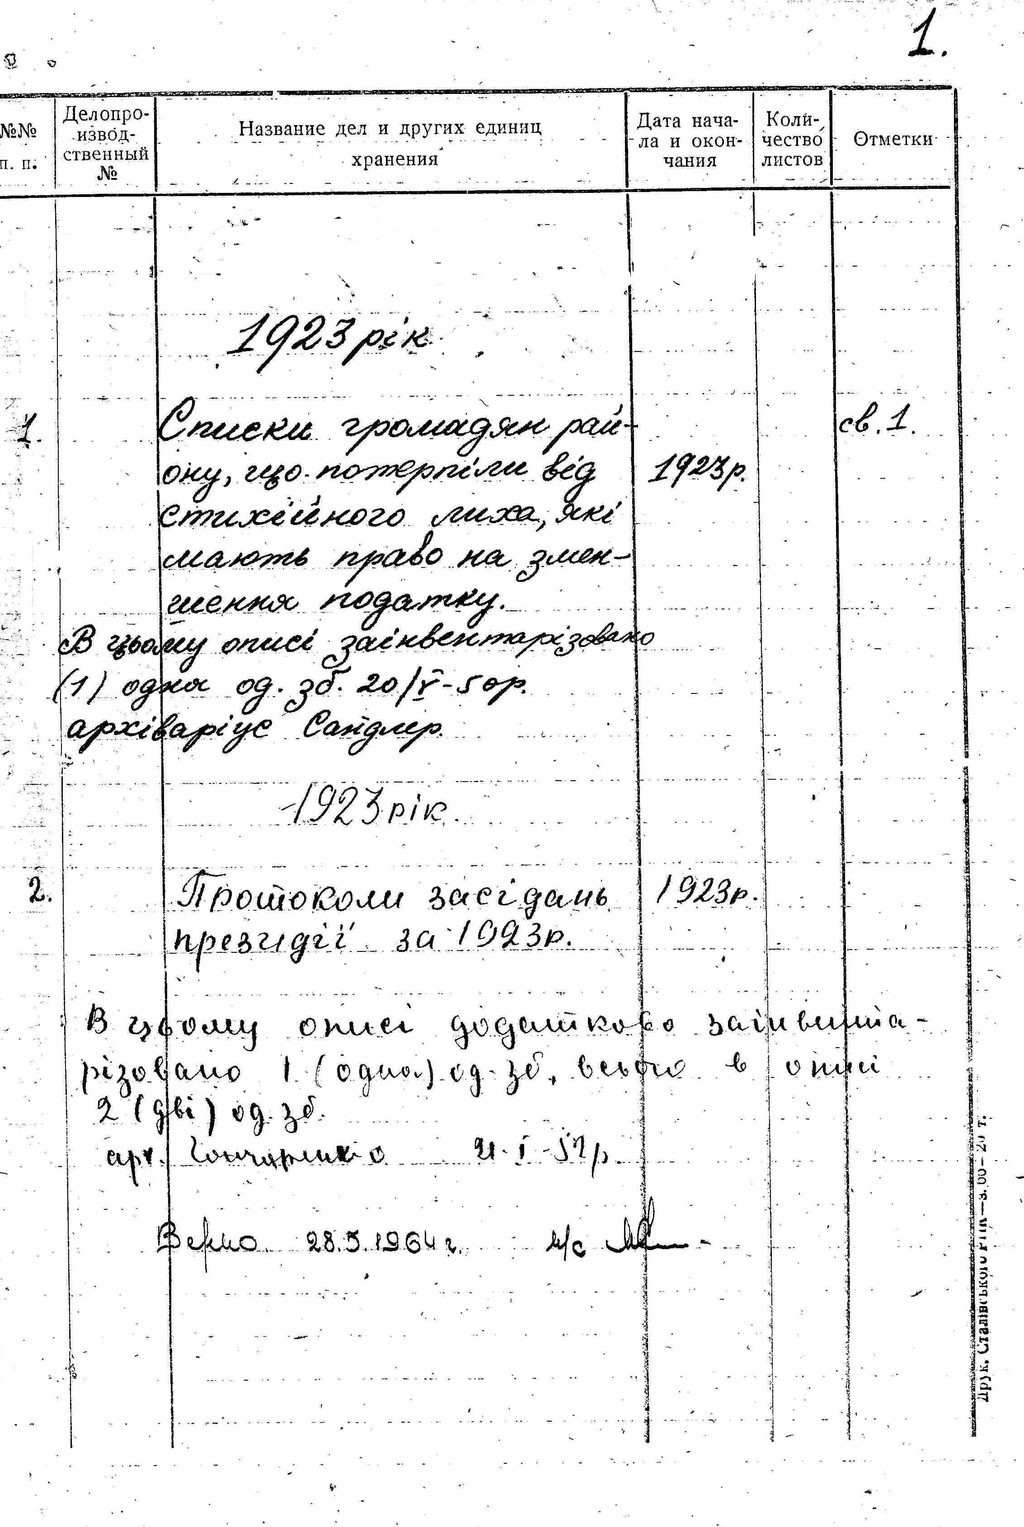 1.
№№ п. п.
Делопроизводственный №
Название дел и других единиц хранения
Дата начала и окончания
Количество листов
Отметки
1923 рік
1. Списки громадян рай- св. 1.
ону, що потерпіли від 1923р.
стихійного лиха, які
мають право на змен-
шення податку.
В цьому описі заінвентарізовано
(1) одна од. зб. 20/V-50р.
архіваріус Сандлер.
1923 рік.
2. Протоколи засідань 1923р.
президії за 1923р.
В цьому описі додатково заінвента-
різовано 1 (одна) од. зб, всього в описі
2 (дві) од. зб.
арх. Гончаренко 21-I-52р.
Верно 28.5.1964г.
Друк. Сталінського